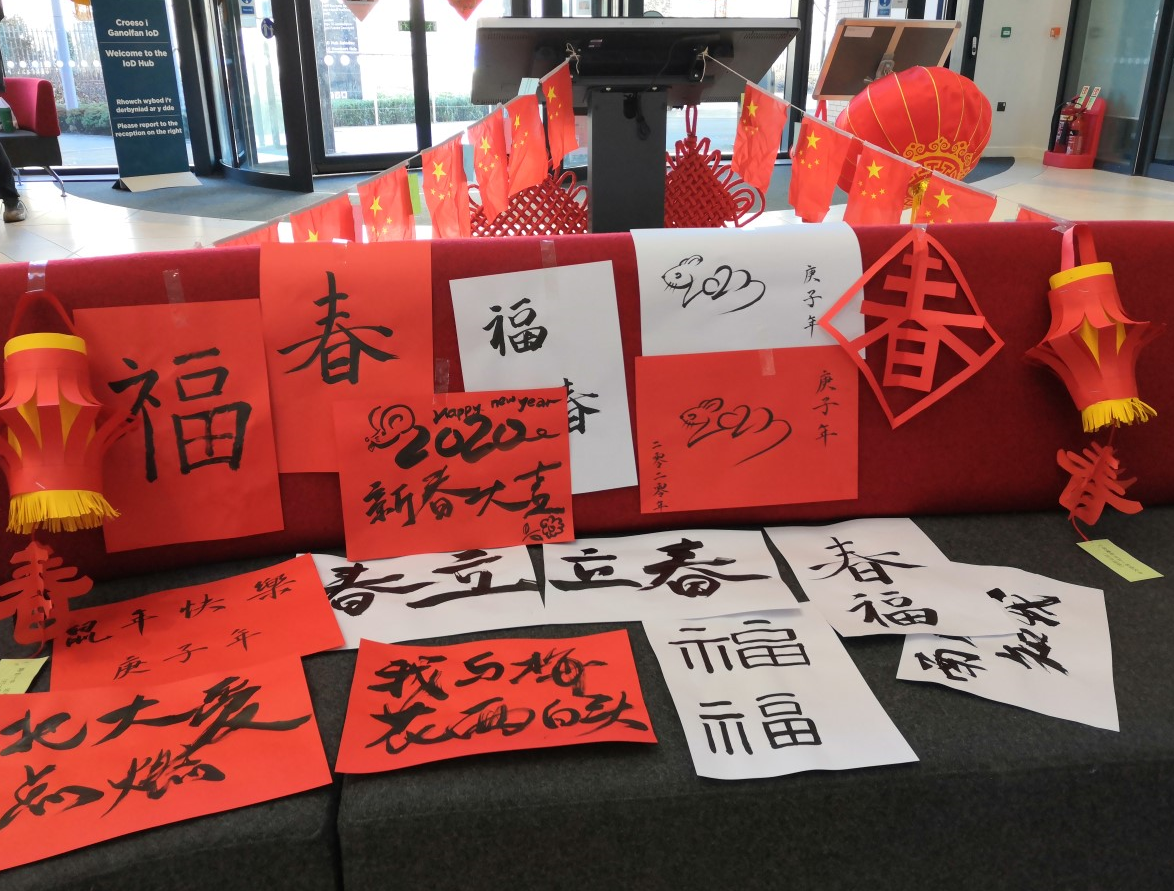 Croeso i
Ganolfan IoD
Welcome to the
IoD Hub
Rhowch wybod i'r
derbyniad ar y dde
Please report to the
reception on the right
福
春
福
春
Happy new year
2020
新春大吉
庚子年
庚子年
二零二零年
春
春
春
鼠年快樂
庚子年
春立
立春
春
福
大爱
点燃
我与梅
花两白头
福
福